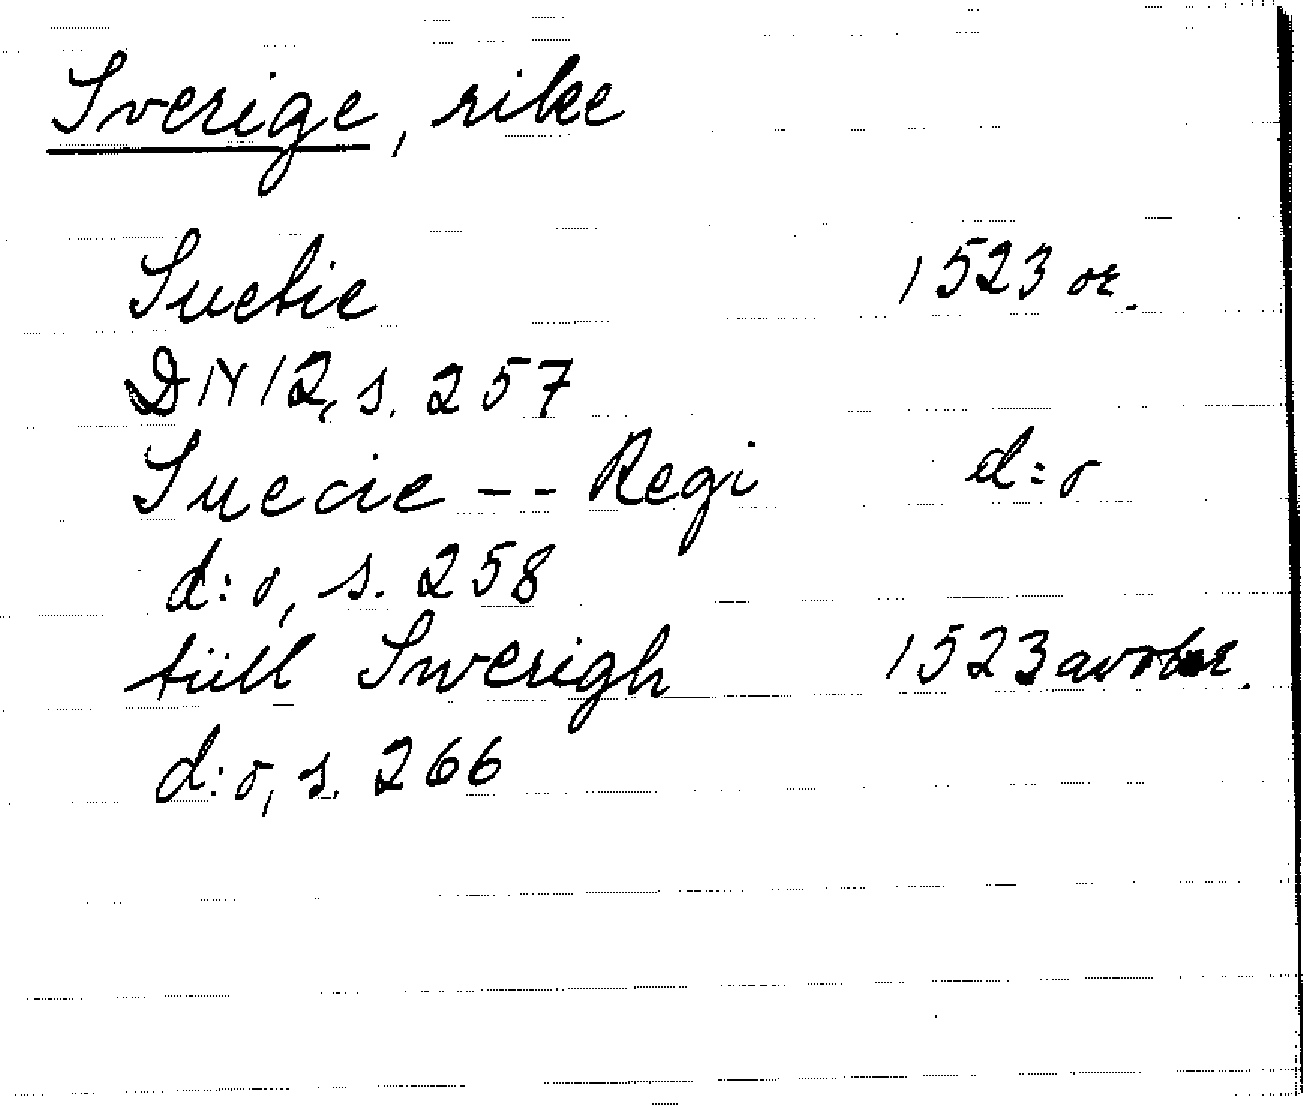 Sverige, rike
Suetie 1523 or.
DN 12, s. 257
Suecie -- Regi d:o
d:o, s. 258
tiill Swerigh 1523
d:o, s. 266